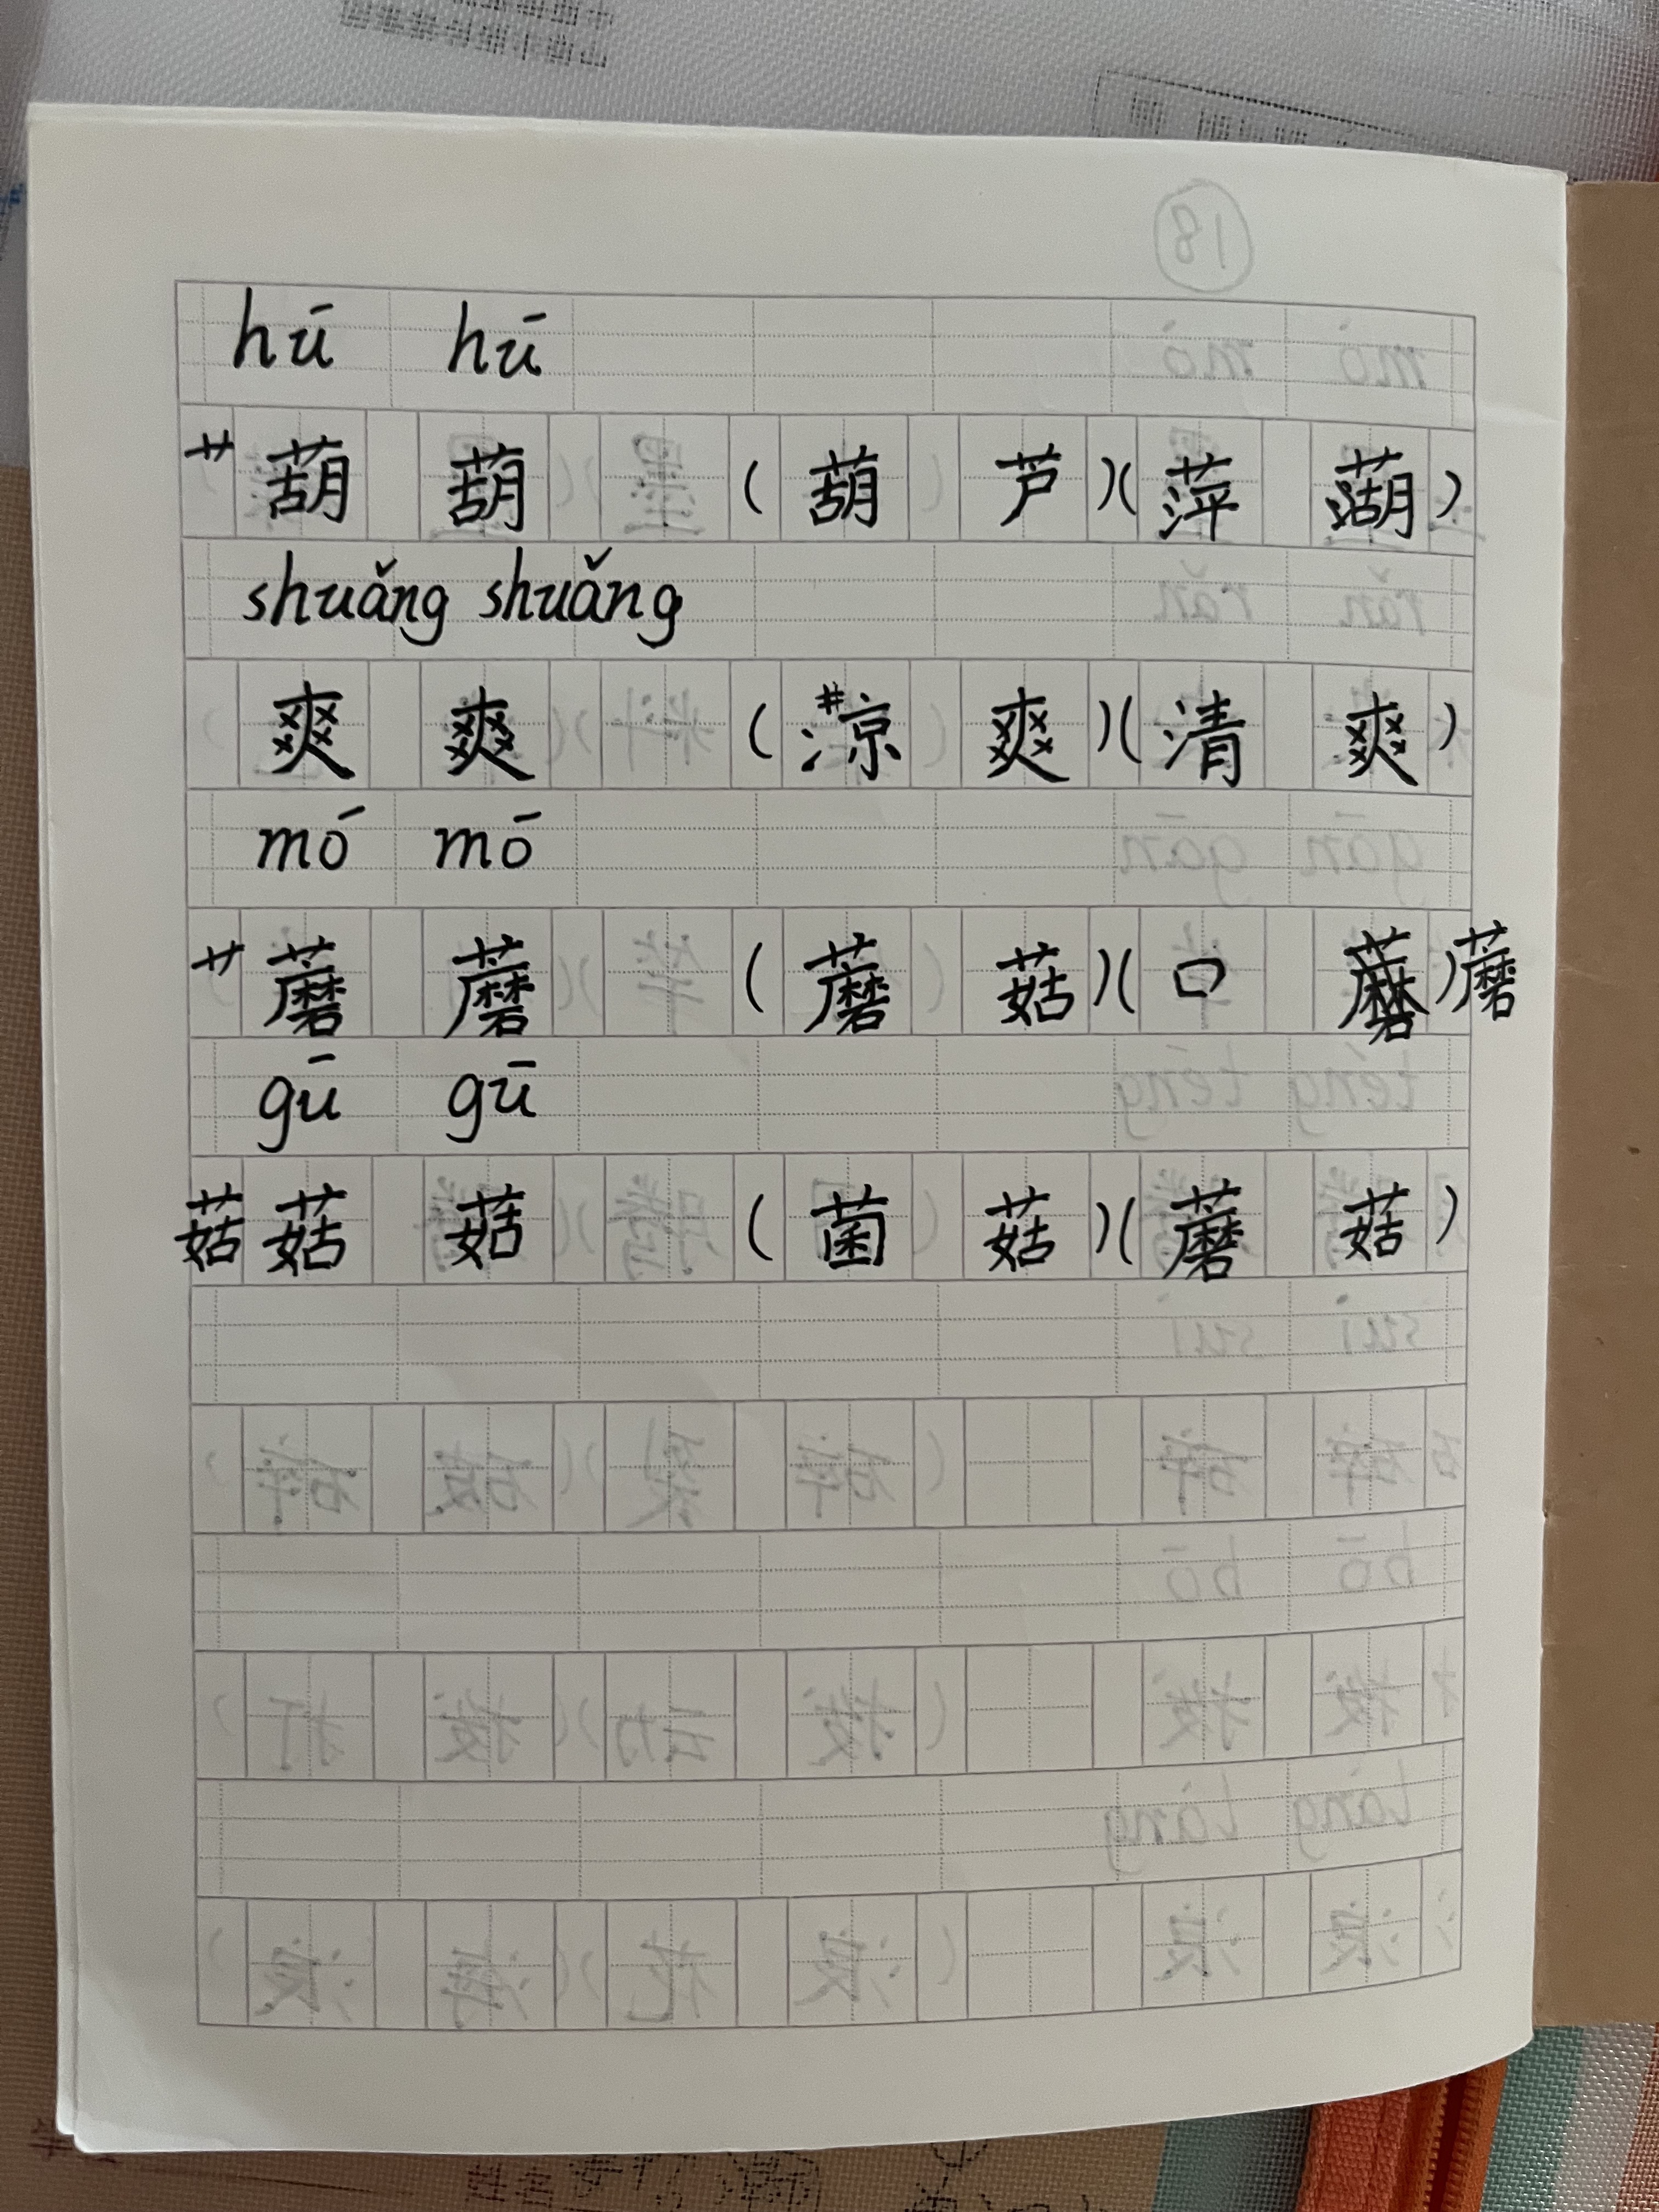 hú hú
艹 葫 葫 (葫 芦)(萍 )
shuǎng shuǎng
爽 爽 (凉 爽)(清 爽)
mó mó
艹 蘑 蘑 (蘑 菇)(口 蘑)蘑
gū gū
菇 菇 菇 (菌 菇)(蘑 菇)